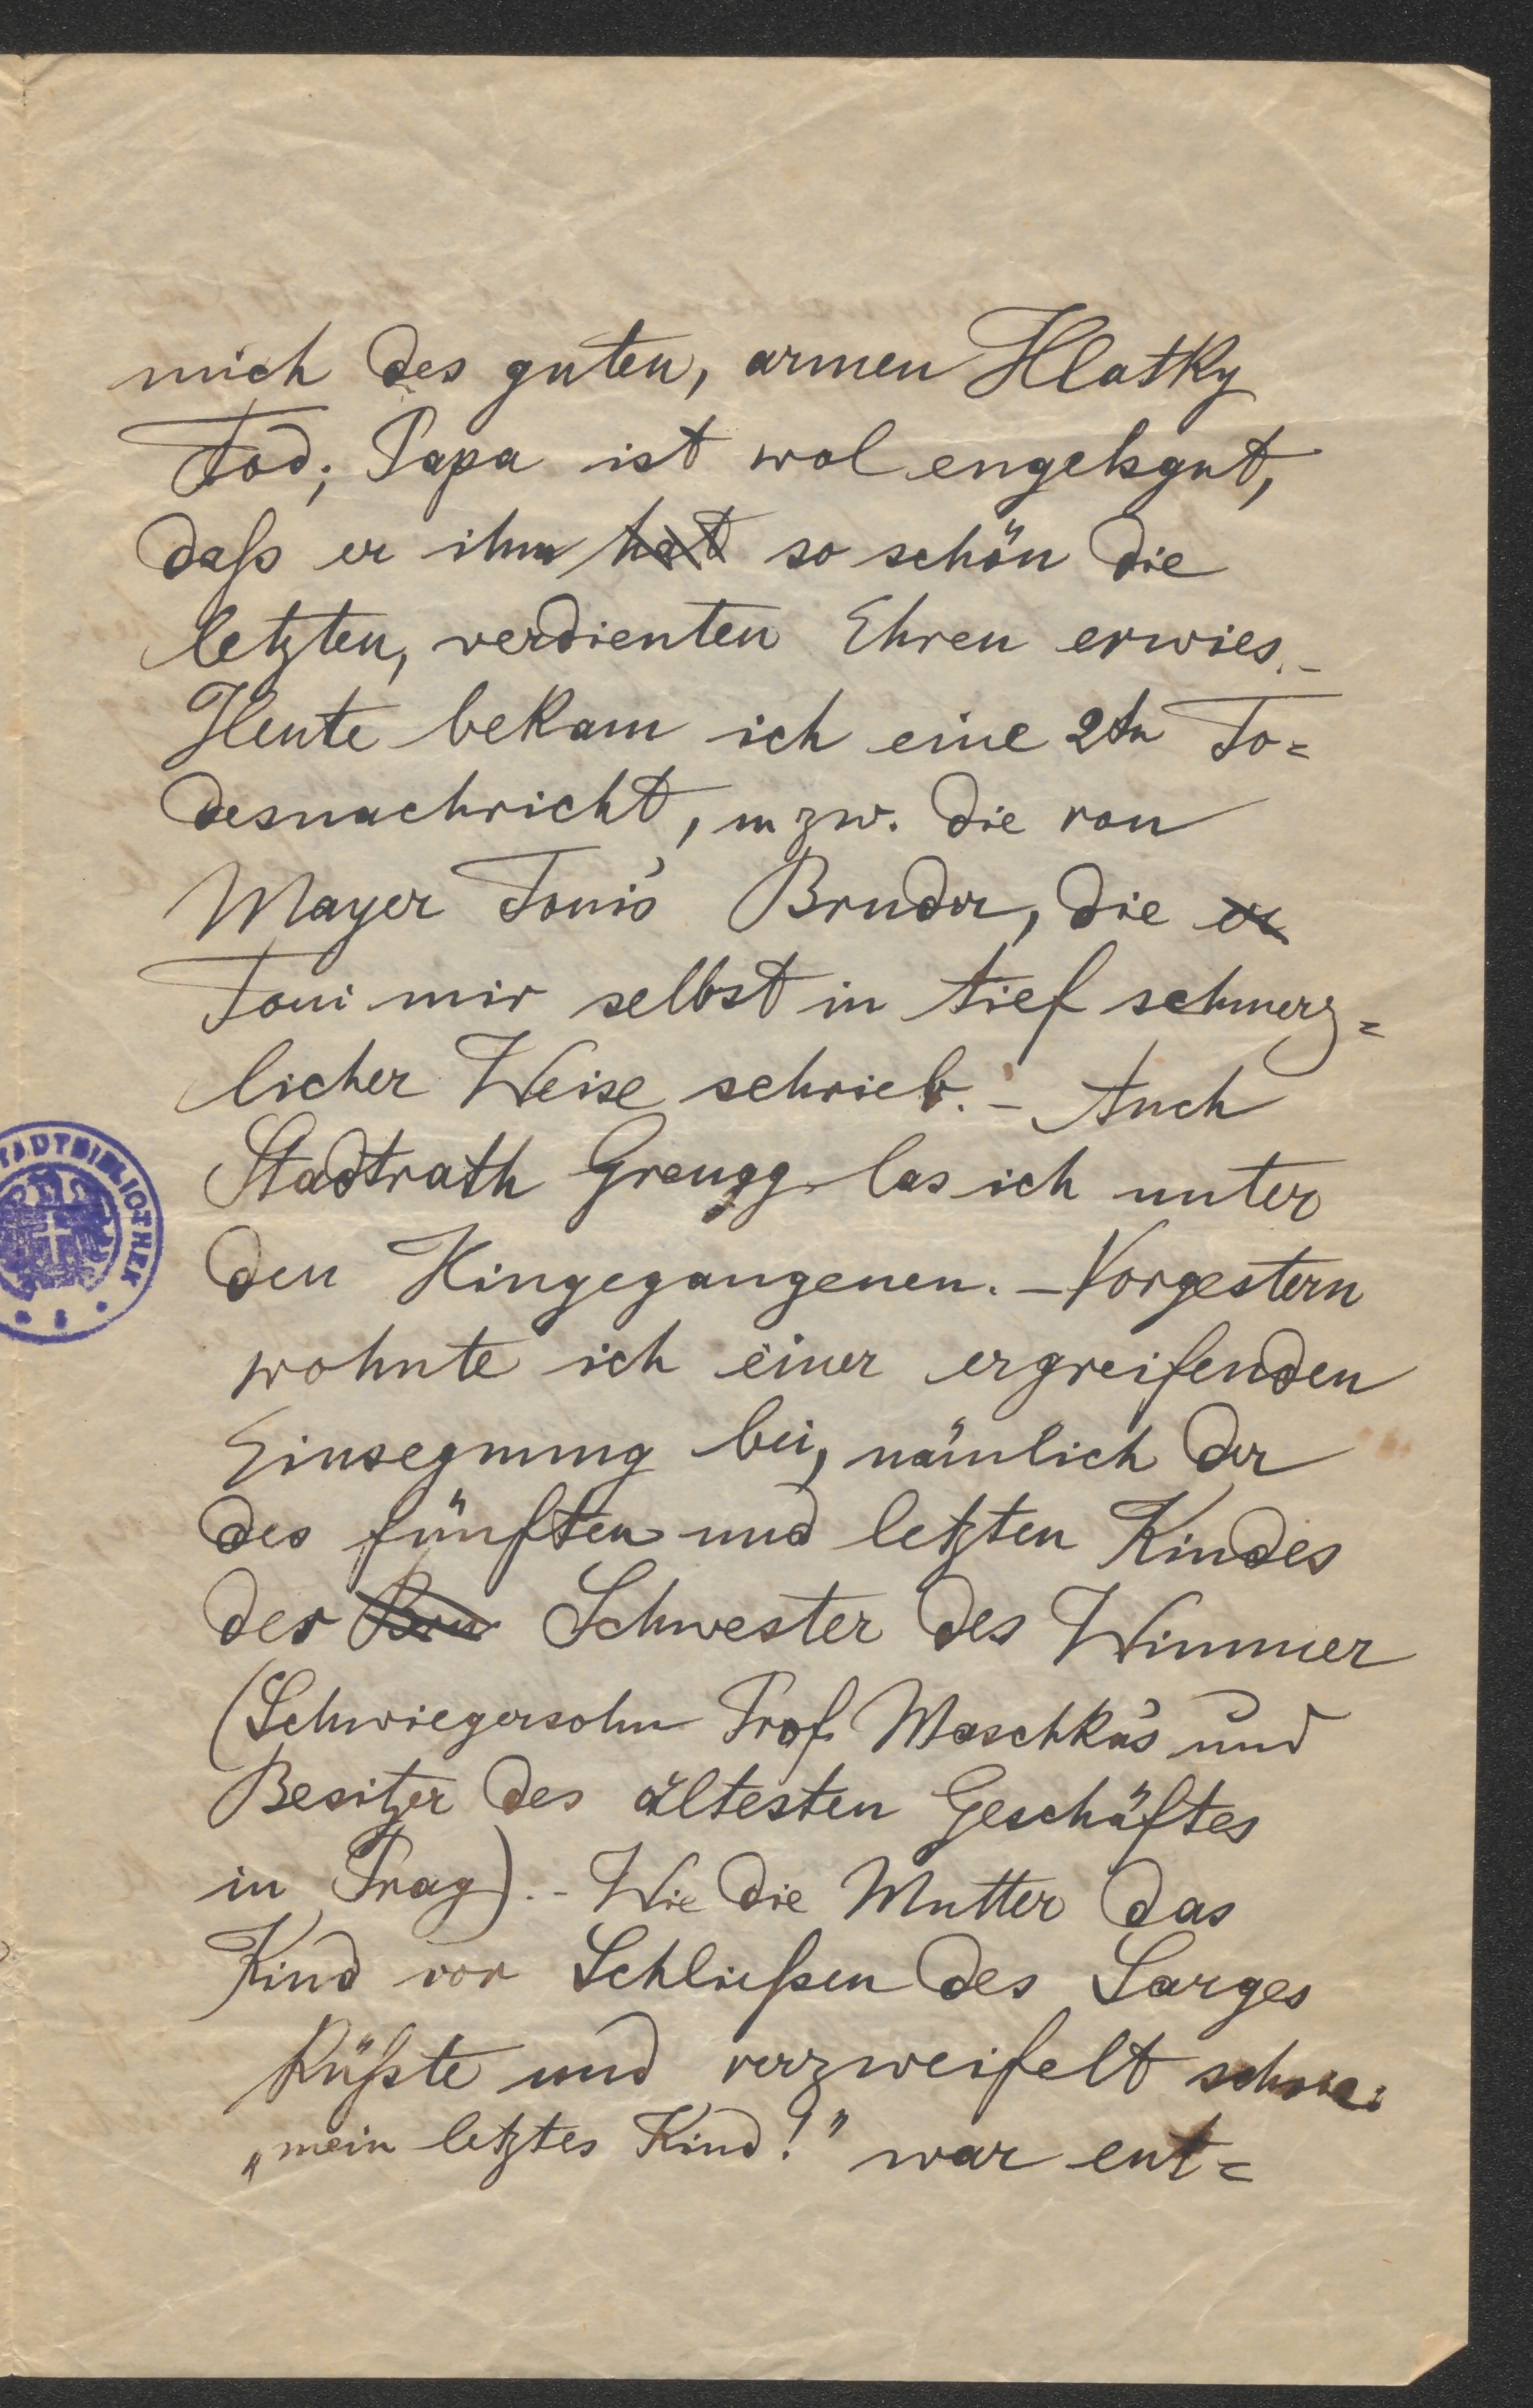 mich des guten, armen Hlatky
Tod; Papa ist wol engelsgut,
daß er ihm hat so schön die
letzten, verdienten Ehren erwies.–
Heute bekam ich eine 2te To=
desnachricht, u zw. die von
Mayer Toni's Bruder, die er
Toni mir selbst in tief schmerz=
licher Weise schrieb. – Auch
Stadtrath Greugg las ich unter
den Hingegangenen. – Vorgestern
wohnte ich einer ergreifenden
Einsegnung bei, nämlich der
des fünften und letzten Kindes
der Bru Schwester des Wimmer
(Schwiegersohn Prof. Maschka's und
Besitzer des ältesten Geschäftes
in Prag). – Wie die Mutter das
Kind vor Schließen des Sarges
küßte und verzweifelt schrie:
„mein letztes Kind!" war ent=
STADTBIBLIOTHEK